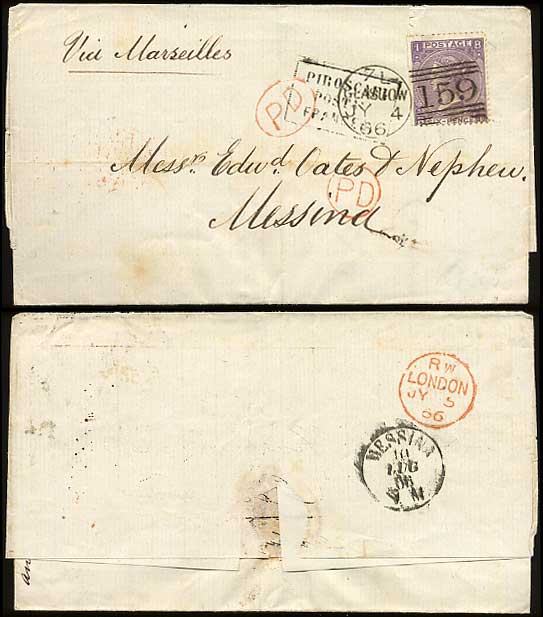 Via Marseilles
I POSTAGE B
159
GLASGOW
JY 4
66
PIROSCAFI
POST
PD
Messrs. Edwd. Oates & Nephew.
PD
Messina
RW
LONDON
JY 5
66
MESSINA
10
LUG
66